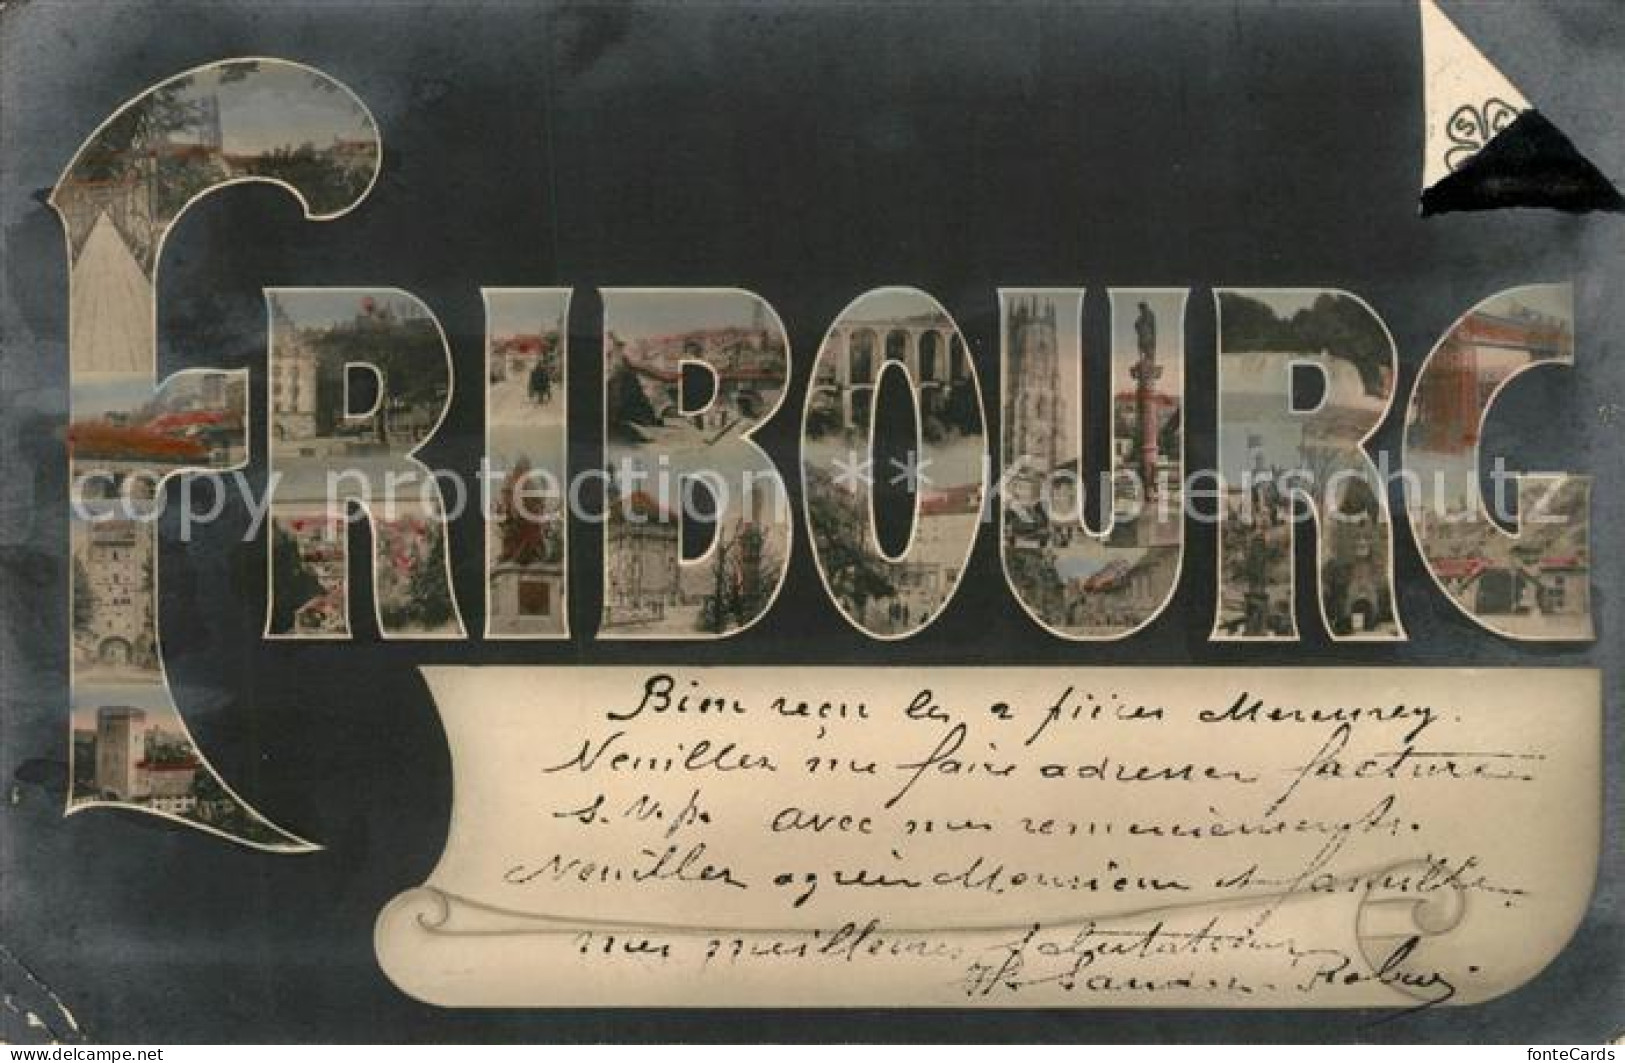 FRIBOURG
S C
copy protection ** Kopierschutz
Bien reçu les 2 pièces
Veuillez me faire adresser facture
s.v.p. avec mes remerciements.
Veuillez agréer Monsieur et famille
mes meilleures salutations
www.delcampe.net
fonteCards